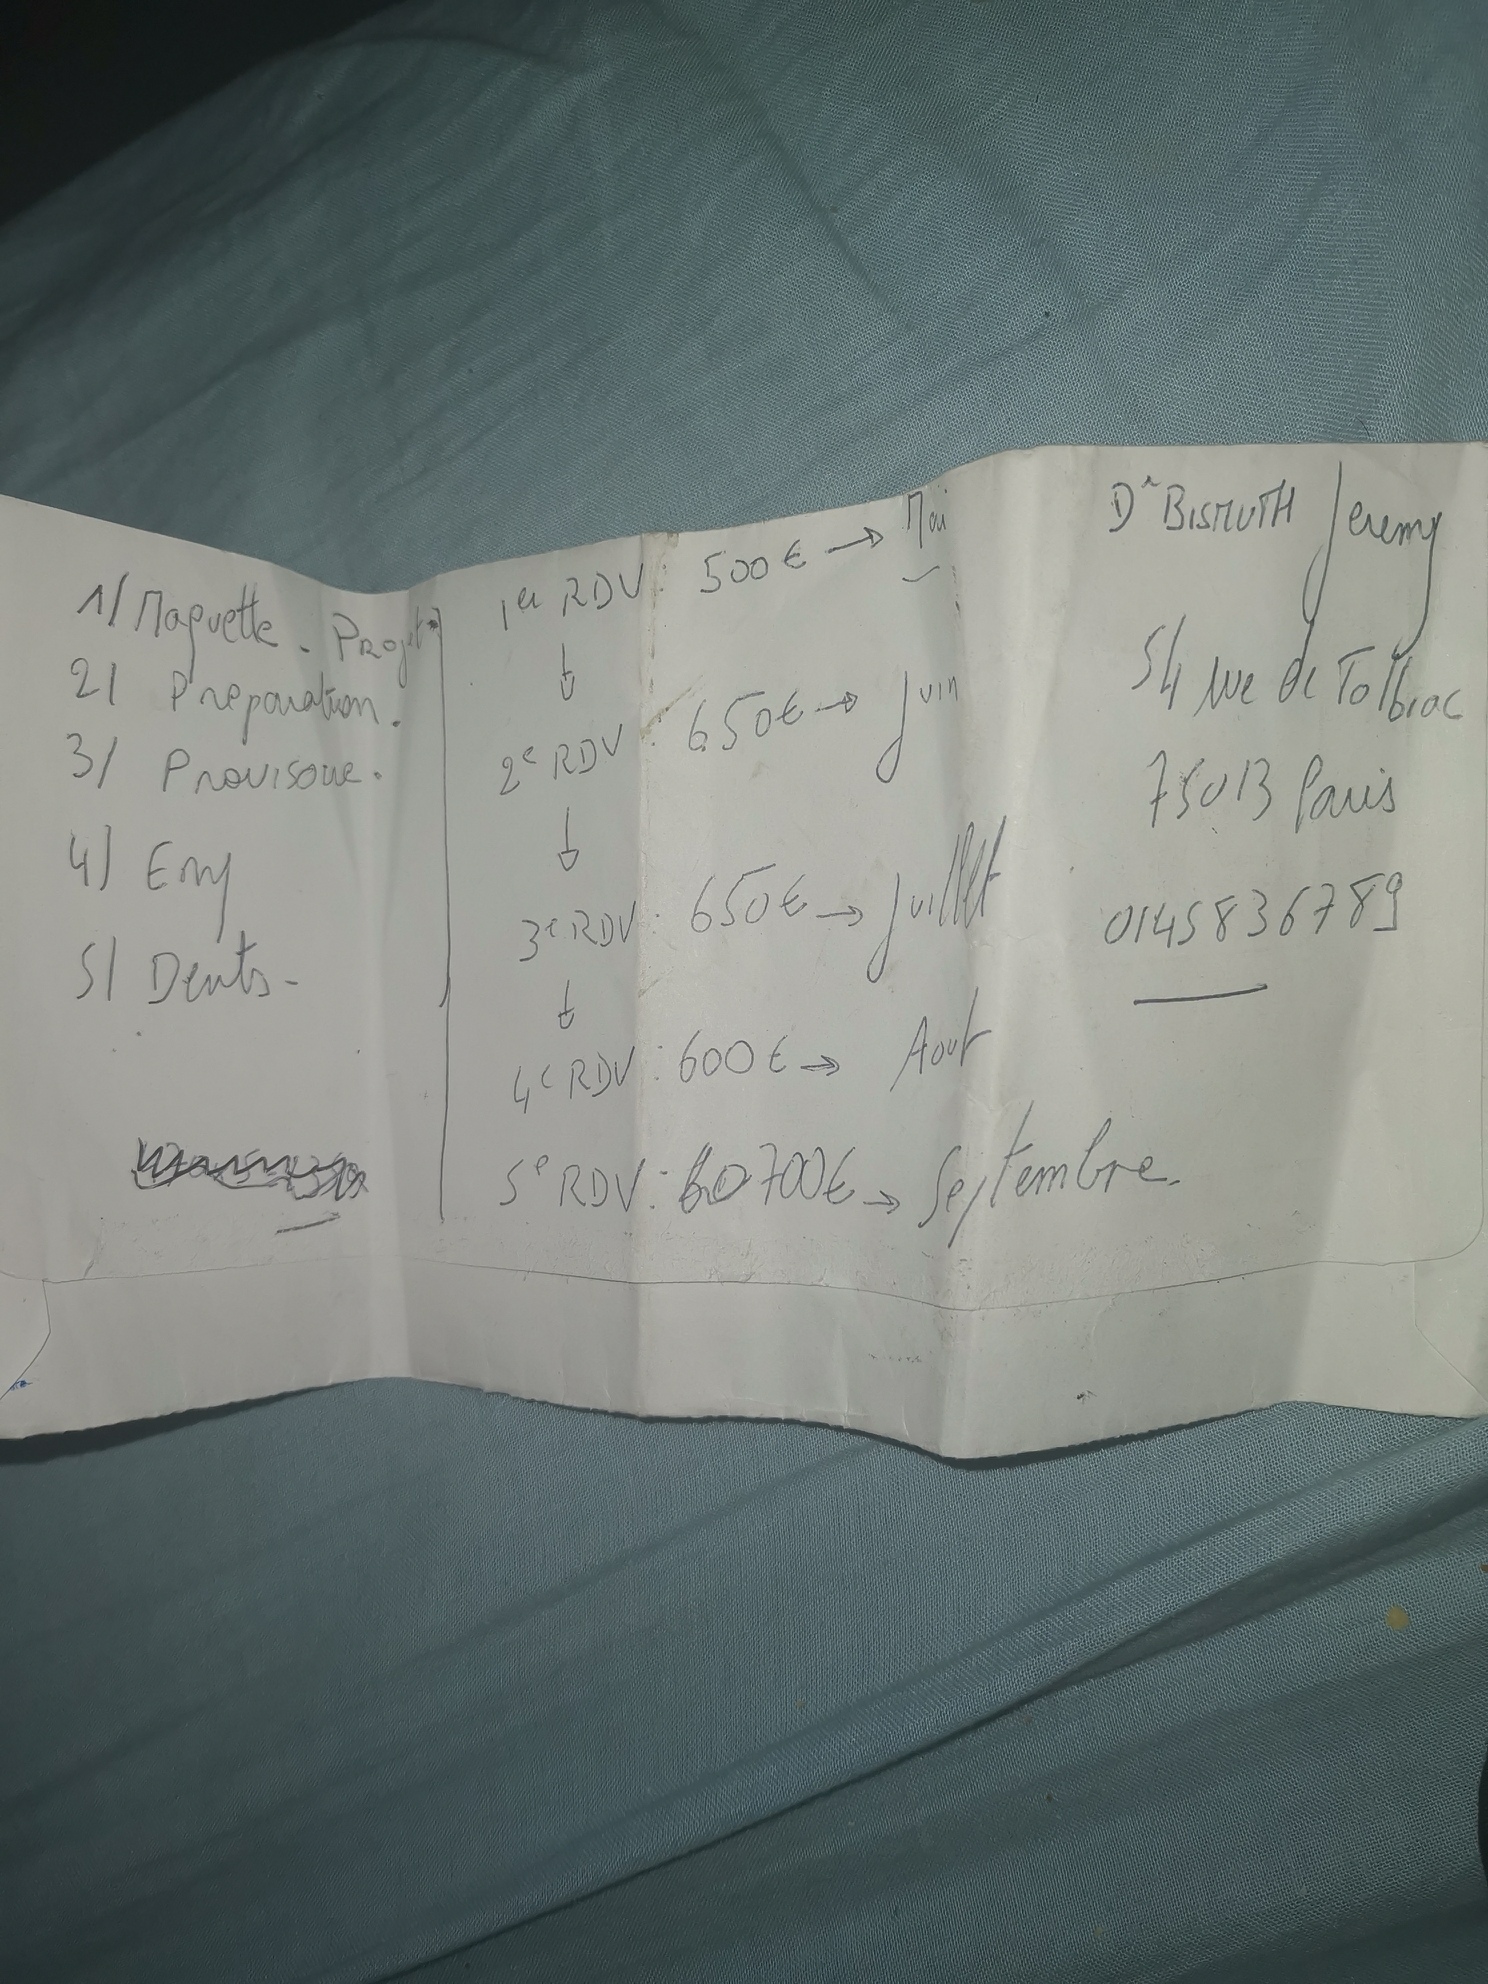 1/ Maquette - Projet
2/ Préparation.
3/ Provisoire.
4/ Emp
5/ Dents -
1er RDV : 500€ → Mai
↓
2e RDV : 650€ → Juin
↓
3e RDV : 650€ → Juillet
↓
4e RDV : 600€ → Aout
5e RDV : 700€ → Septembre.
Dr BISMUTH Jeremy
54 rue de Tolbiac
75013 Paris
0145836789